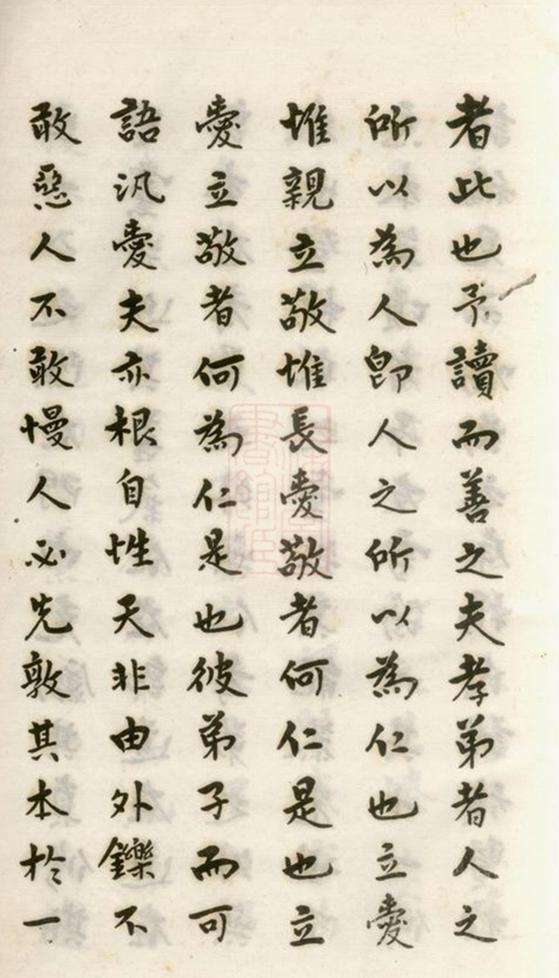 者此也予讀而善之夫孝弟者人之
所以為人即人之所以為仁也立愛
惟親立敬惟長愛敬者何仁是也立
愛立敬者何為仁是也彼弟子而可
語汎愛夫亦根自性天非由外鑠不
敢惡人不敢慢人必先敦其本於一